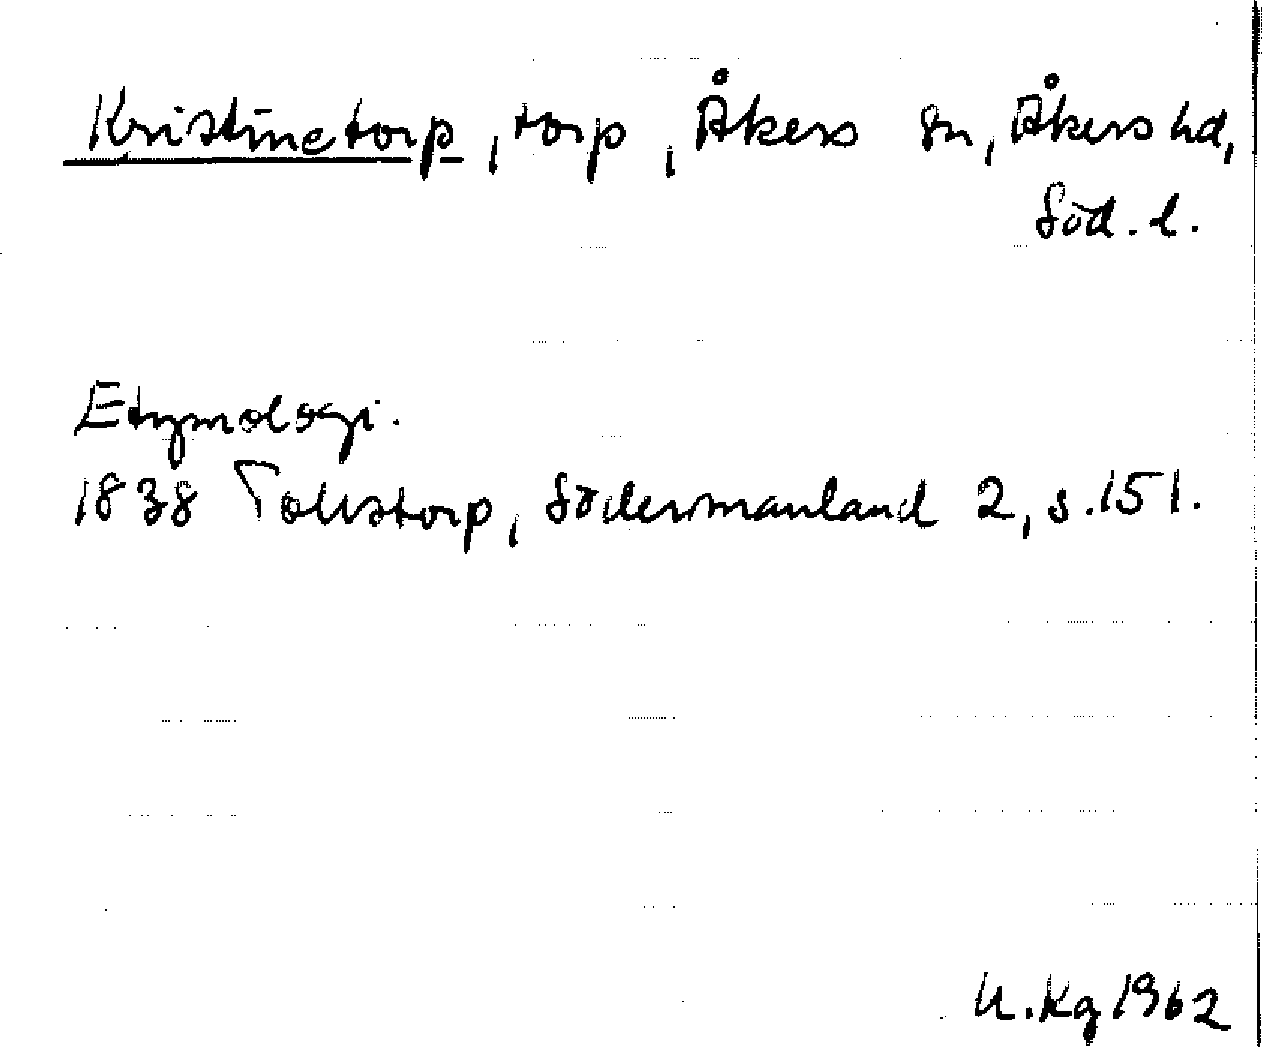 Kristinetorp, torp, Åkers sn, Åkers hd,
Söd. l.
Etymologi.
1838 Tollstorp, Södermanland 2, s. 151.
U. Kg 1962